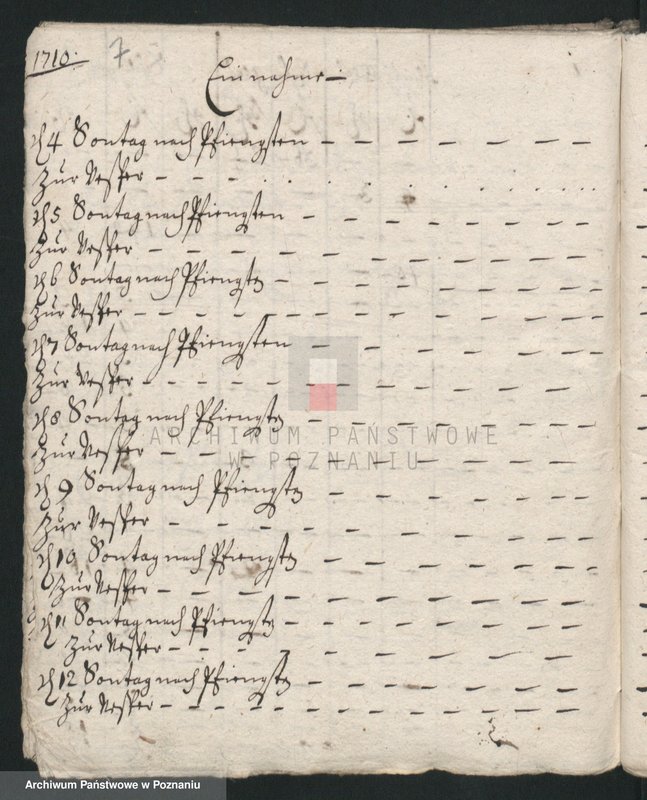 1710. 7
Einnahme
d 4 Sontag nach Pfiengsten
Zur Vesper
d 5 Sontag nach Pfiengsten
Zur Vesper
d 6 Sontag nach Pfiengst
Zur Vesper
d 7 Sontag nach Pfiengsten
Zur Vesper
d 8 Sontag nach Pfiengst
ARCHIWUM PAŃSTWOWE
Zur Vesper
W POZNANIU
d 9 Sontag nach Pfiengst
Zur Vesper
d 10 Sontag nach Pfiengst
Zur Vesper
d 11 Sontag nach Pfiengst
Zur Vesper
d 12 Sontag nach Pfiengst
Zur Vesper
Archiwum Państwowe w Poznaniu